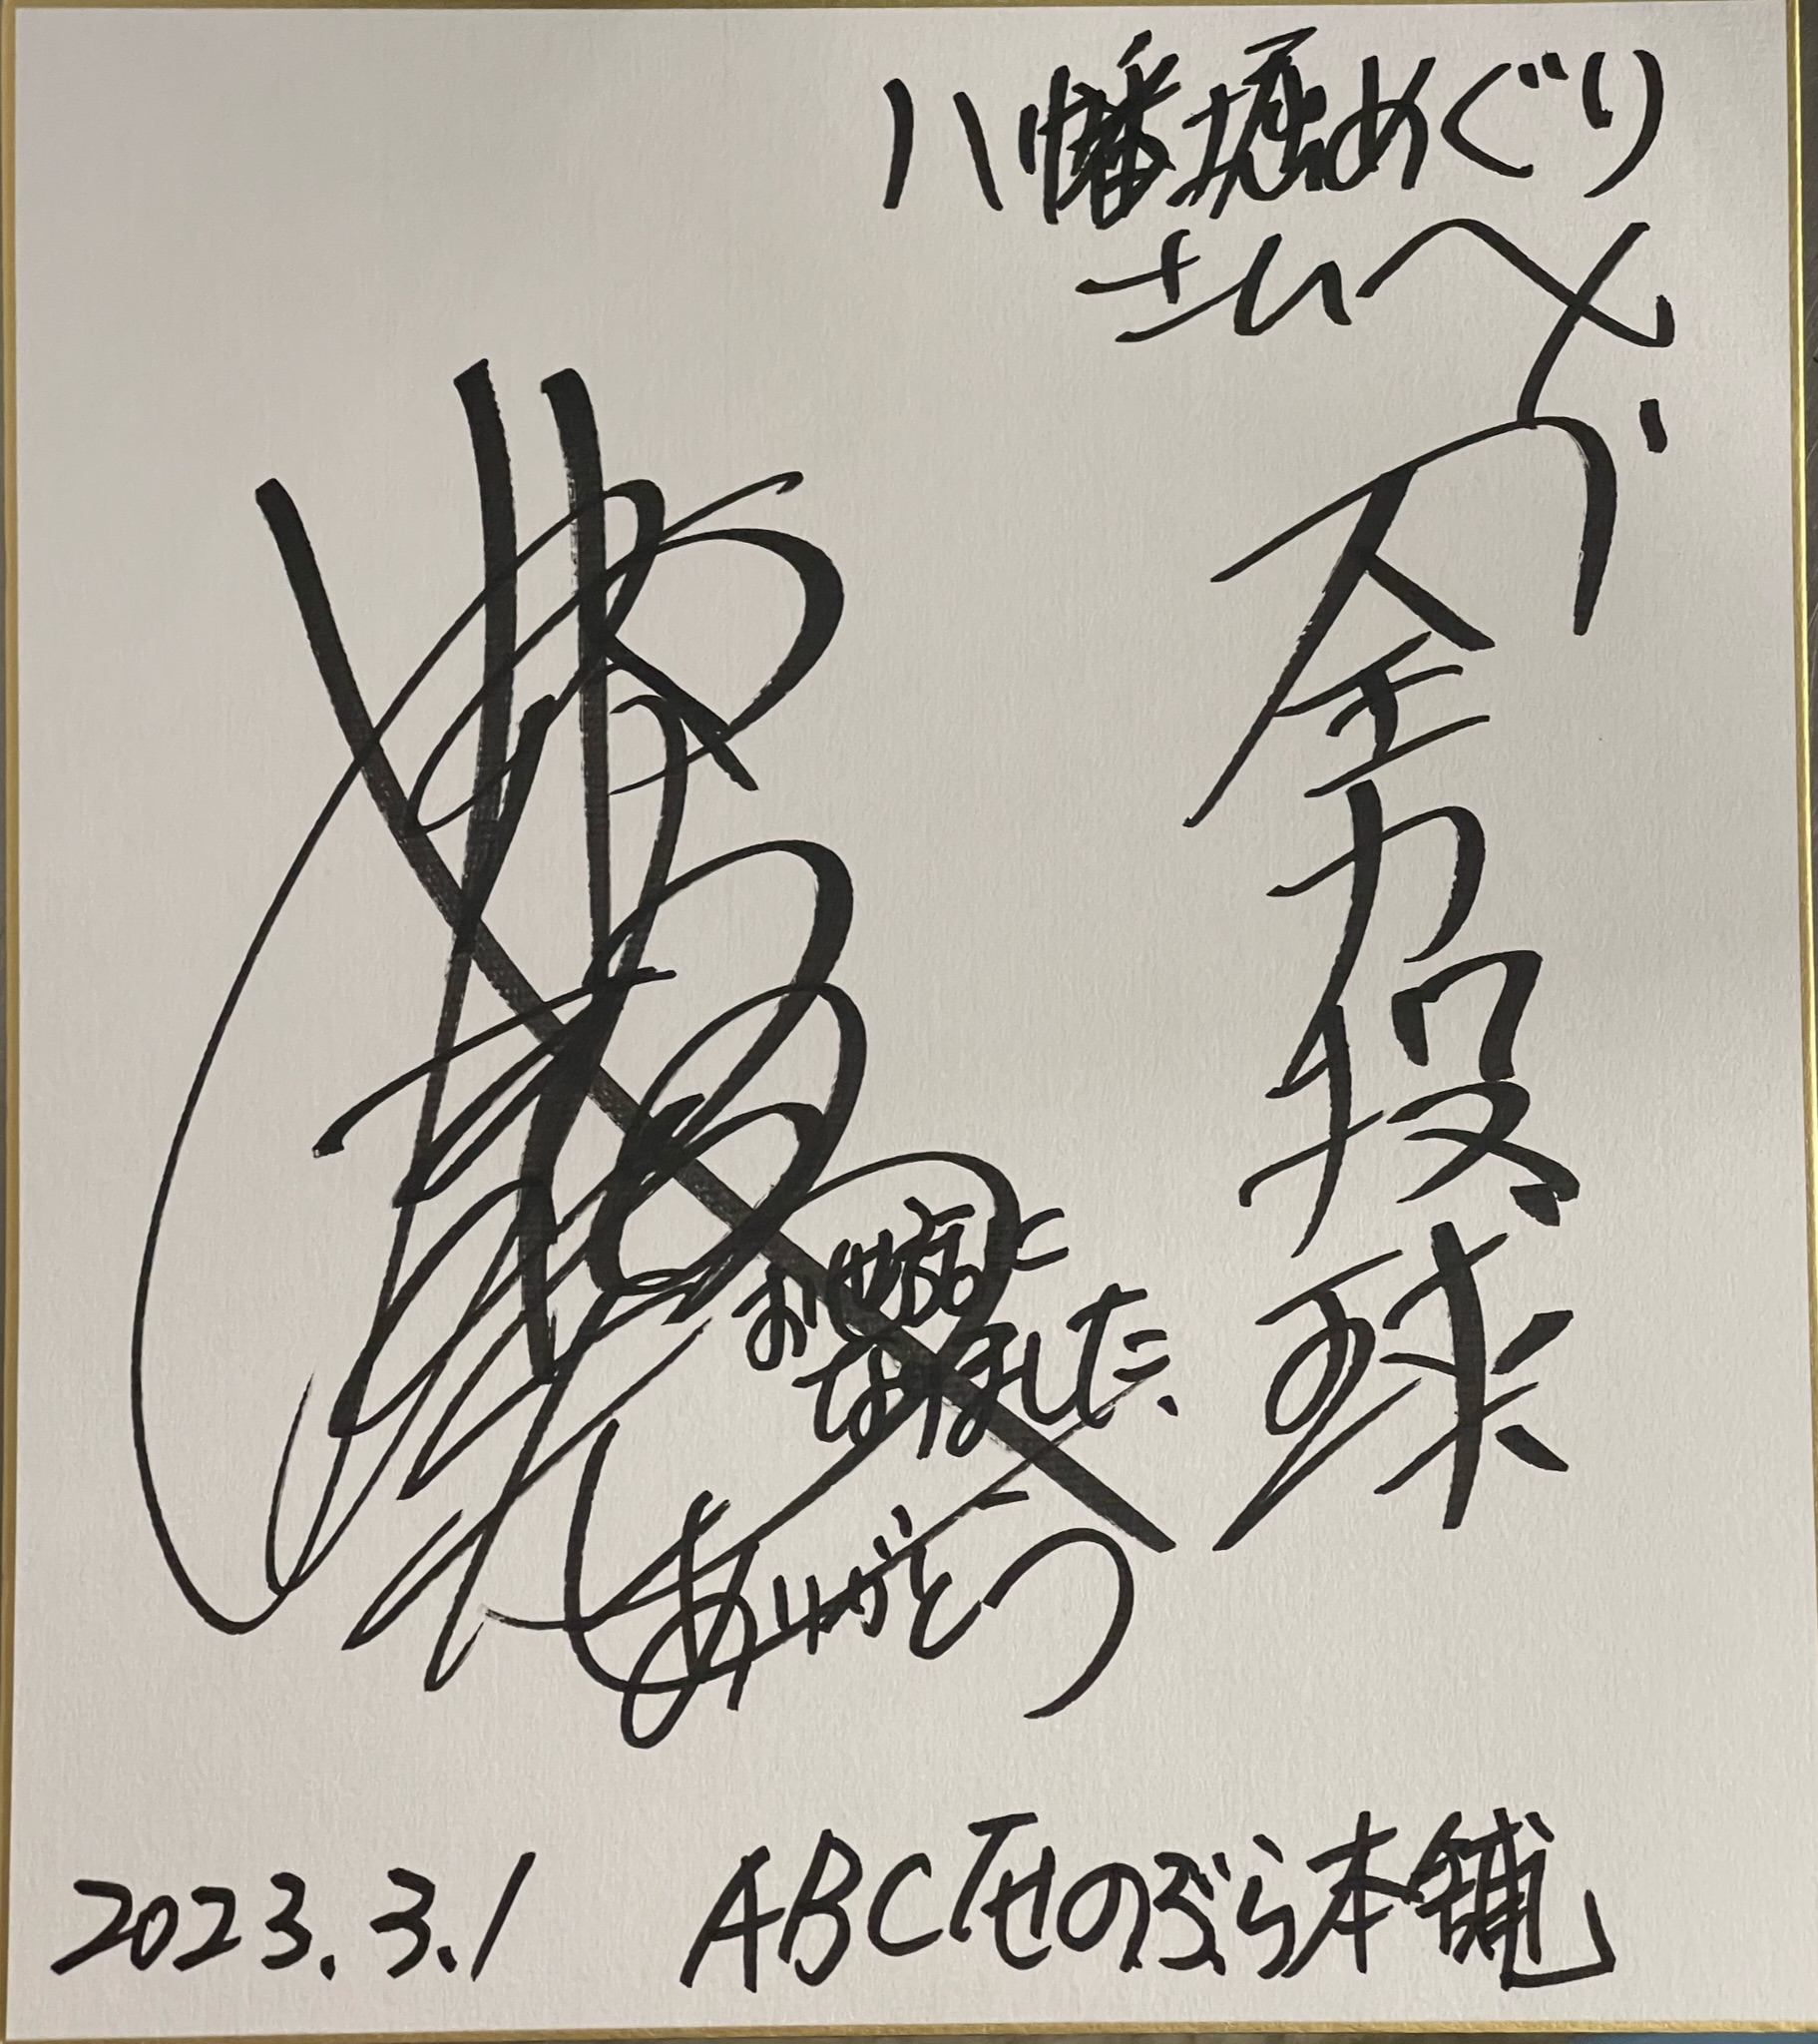 八幡堀めぐり
さんへ
全力投球
お世話に
なりました、
ありがとう
2023.3.1 ABC「せのぶら本舗」